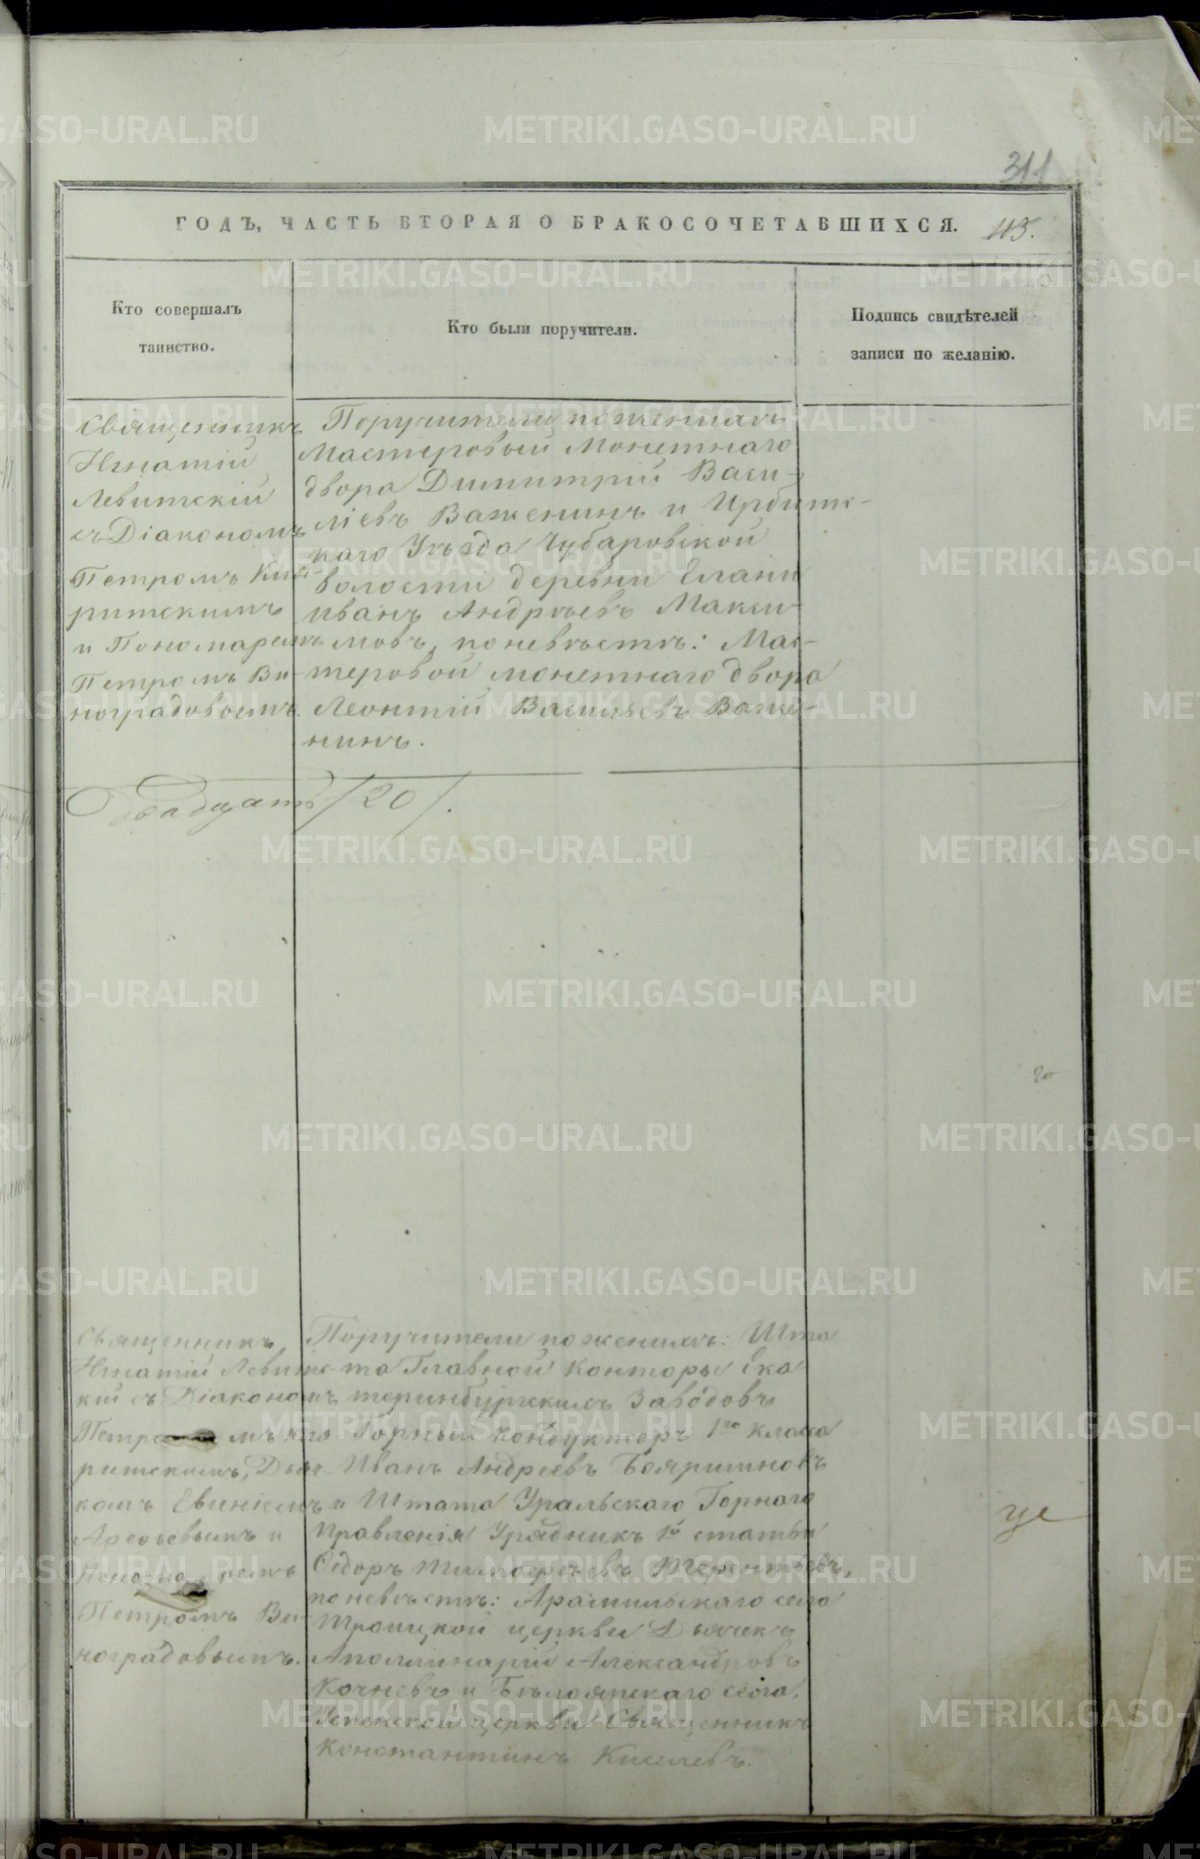 311
ГОДЪ, ЧАСТЬ ВТОРАЯ О БРАКОСОЧЕТАВШИХСЯ.
Кто совершалъ
таинство.
Кто были поручители.
Подпись свидѣтелей
записи по желанію.
Священникъ
Игнатій
Левитскій
съ Діакономъ
Петромъ
ритскимъ
и Пономаремъ
Петромъ Ви-
ноградовымъ.
Поручители по женихѣ
Мастеровый Монетнаго
двора Димитрій Васи-
ліевъ Важенинъ и Ирбитс-
каго Уѣзда Чубаровской
волости деревни Елани
Иванъ Андрѣевъ Макси-
мовъ, по невѣстѣ: Мас-
теровой монетнаго двора
Леонтій Васильевъ Важе-
нинъ.
Двадцать /20/.
Священникъ
Игнатій Левитс-
кій съ Діакономъ
ритскимъ, Дьяч-
комъ Евгеніемъ
и
Петромъ Ви-
ноградовымъ.
Поручители по женихѣ: Шта
та Главной Конторы Ека
теринбургскихъ Заводовъ
Горный кондукторъ 1го класа
Иванъ Андреевъ Бояршиновъ
и Штата Уральскаго Горнаго
Правленія Урядникъ 1й статьи
Ѳедоръ Тимофѣевъ Терентьевъ,
по невѣстѣ: Арамильскаго села
Троицкой церкви Дьячекъ
Аполлинарій Александровъ
Кочневъ и Бѣлоярскаго села
церкви Священникъ
Константинъ Киселевъ.
METRIKI.GASO-URAL.RU